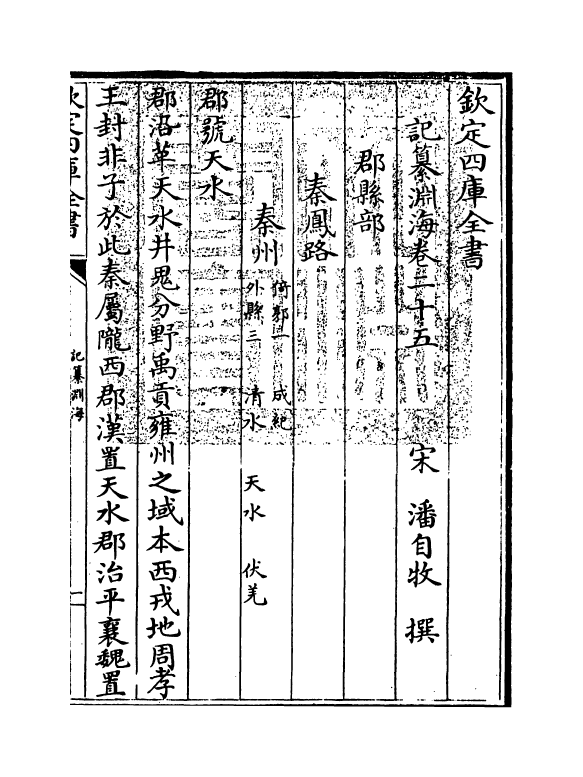 欽定四庫全書
記纂淵海卷二十五 宋 潘自牧 撰
郡縣部
秦鳳路
秦州 倚郭一 成紀
外縣三 清水 天水 伏羌
郡號天水
郡沿革天水井鬼分野禹貢雍州之域本西戎地周孝
王封非子於此秦屬隴西郡漢置天水郡治平襄魏置
欽定四庫全書
記纂淵海